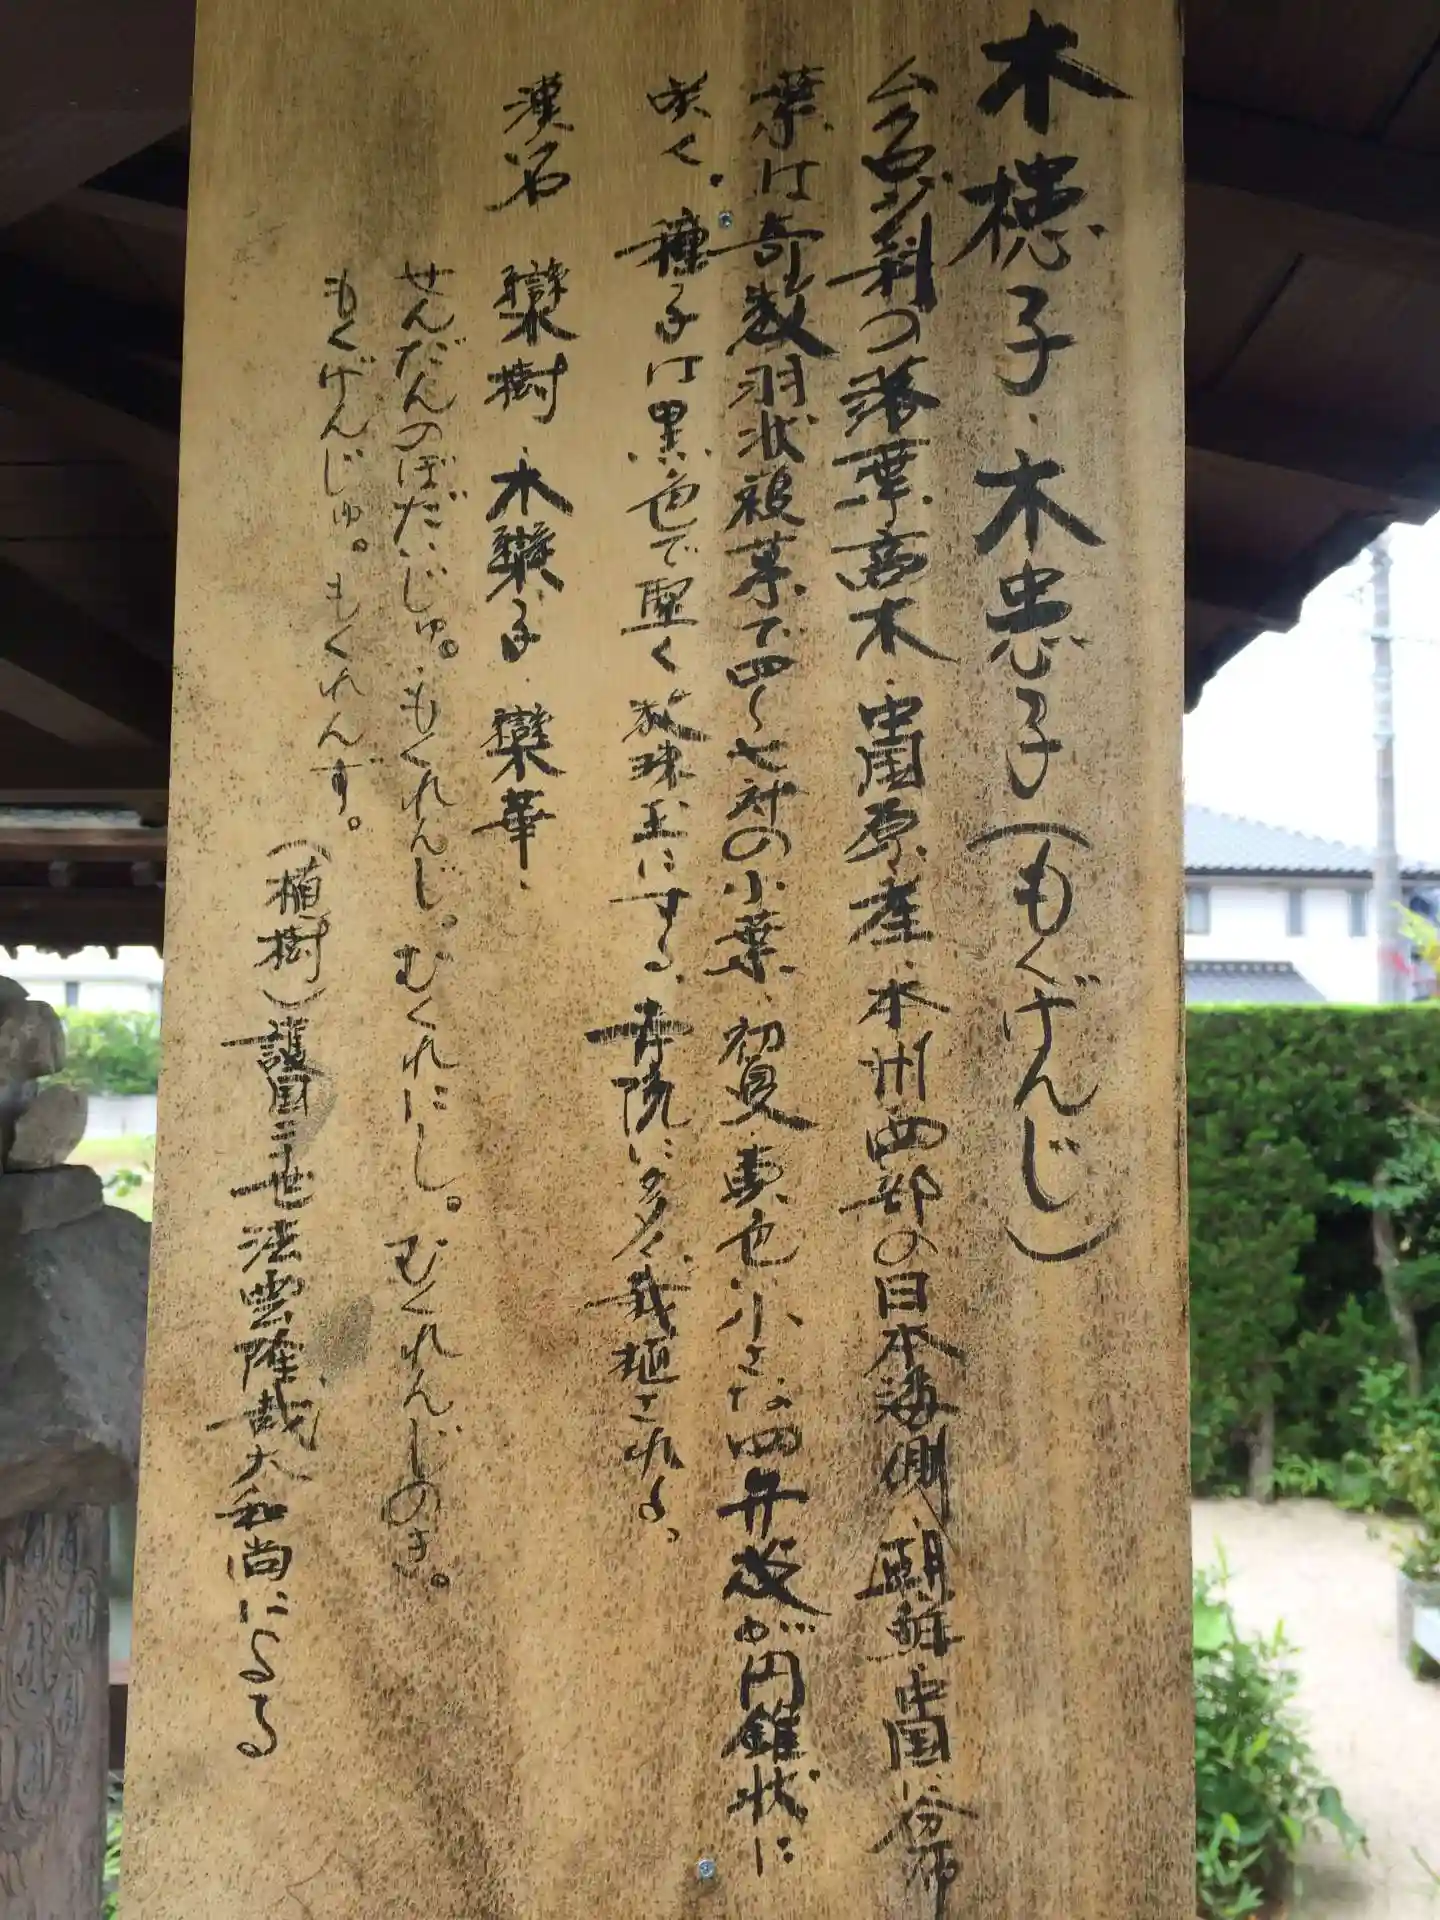 木槵子・木患子(もくげんじ)
ムクロジ科の落葉高木・中国原産・本州西部の日本海側・朝鮮・中国に分布
葉は奇数羽状複葉で四〜七対の小葉、初夏、黄色い小さな四弁花が円錐状に
咲く。種子は黒色で堅く数珠玉にする、寺院に多く栽植される。
漢名 欒樹・木欒子・欒華・
せんだんのぼだいじゅ。もくれんじ。むくれにし。むくれんじのき。
もくげんじゅ。もくれんず。
(植樹)護国三世法雲隆哉大和尚による